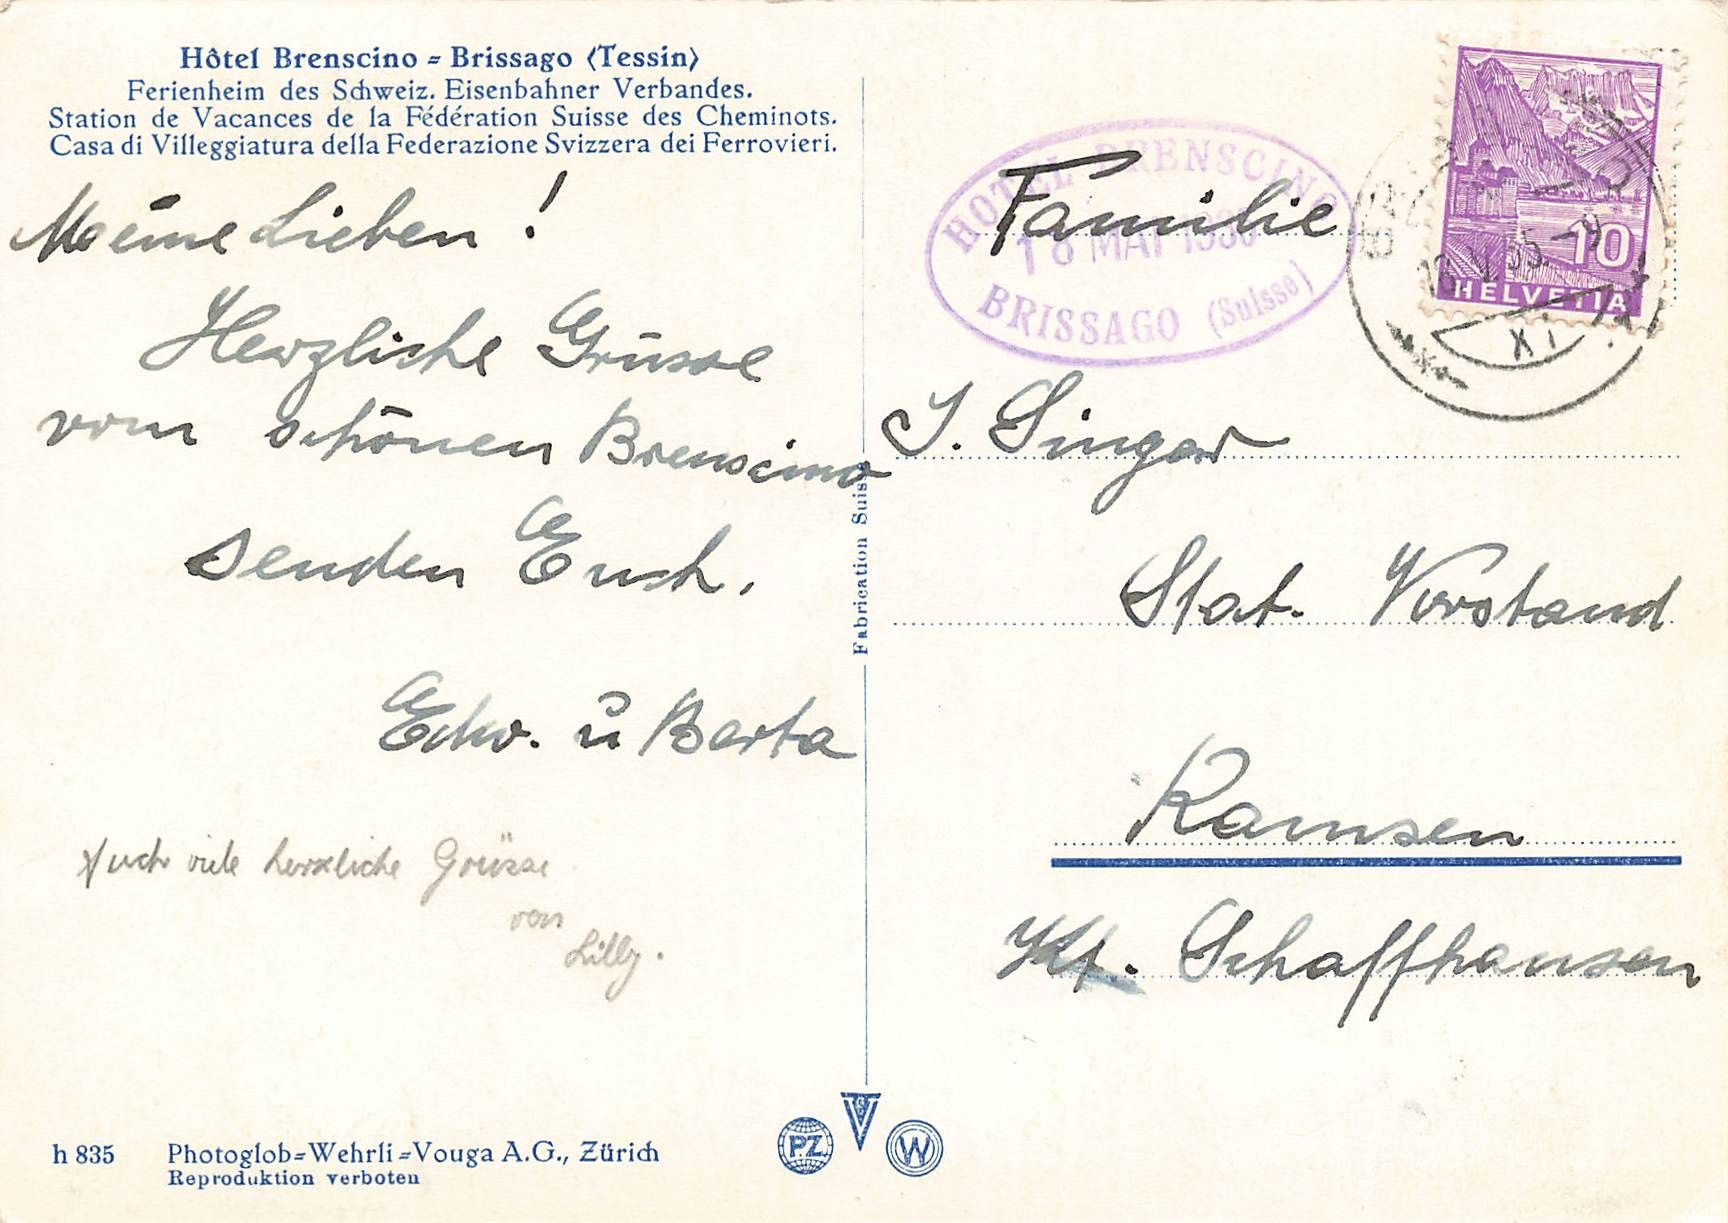 Hôtel Brenscino = Brissago (Tessin)
Ferienheim des Schweiz. Eisenbahner Verbandes.
Station de Vacances de la Fédération Suisse des Cheminots.
Casa di Villeggiatura della Federazione Svizzera dei Ferrovieri.
Meine Lieben !
Herzliche Grüsse
vom schönen Brenscino
senden Euch.
Edw. u Berta
Auch viele herzliche Grüsse
von
Lilly.
h 835
Photoglob=Wehrli=Vouga A.G., Zürich
Reproduktion verboten
Fabrication Suisse
PZ
V
W
HOTEL BRENSCINO
18 MAI
BRISSAGO (Suisse)
10
HELVETIA
XI
Familie
J. Singer
Stat. Vorstand
Ramsen
Kt. Schaffhausen